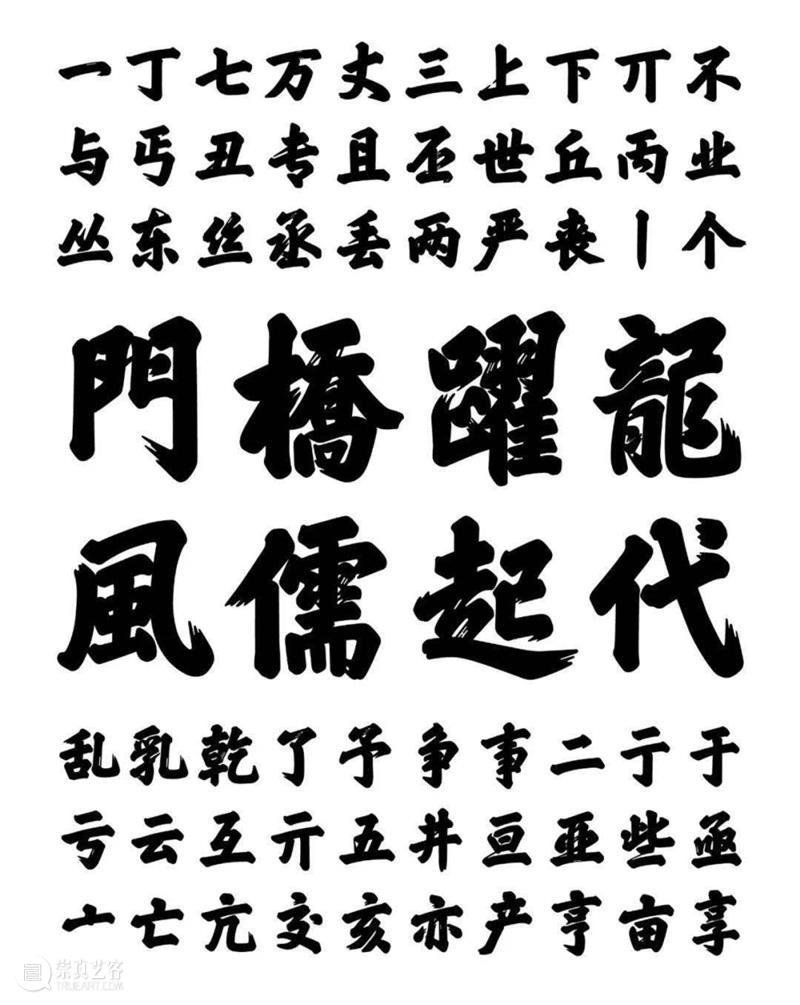 一丁七万丈三上下丌不
与丐丑专且丕世丘丙业
丛东丝丞丢两严丧丨个
龍躍橋門
代起儒風
乱乳乾了予争事二亍于
亏云互亓五井亘亚些亟
亠亡亢交亥亦产亨亩享
崇真艺客
TRUEART.COM